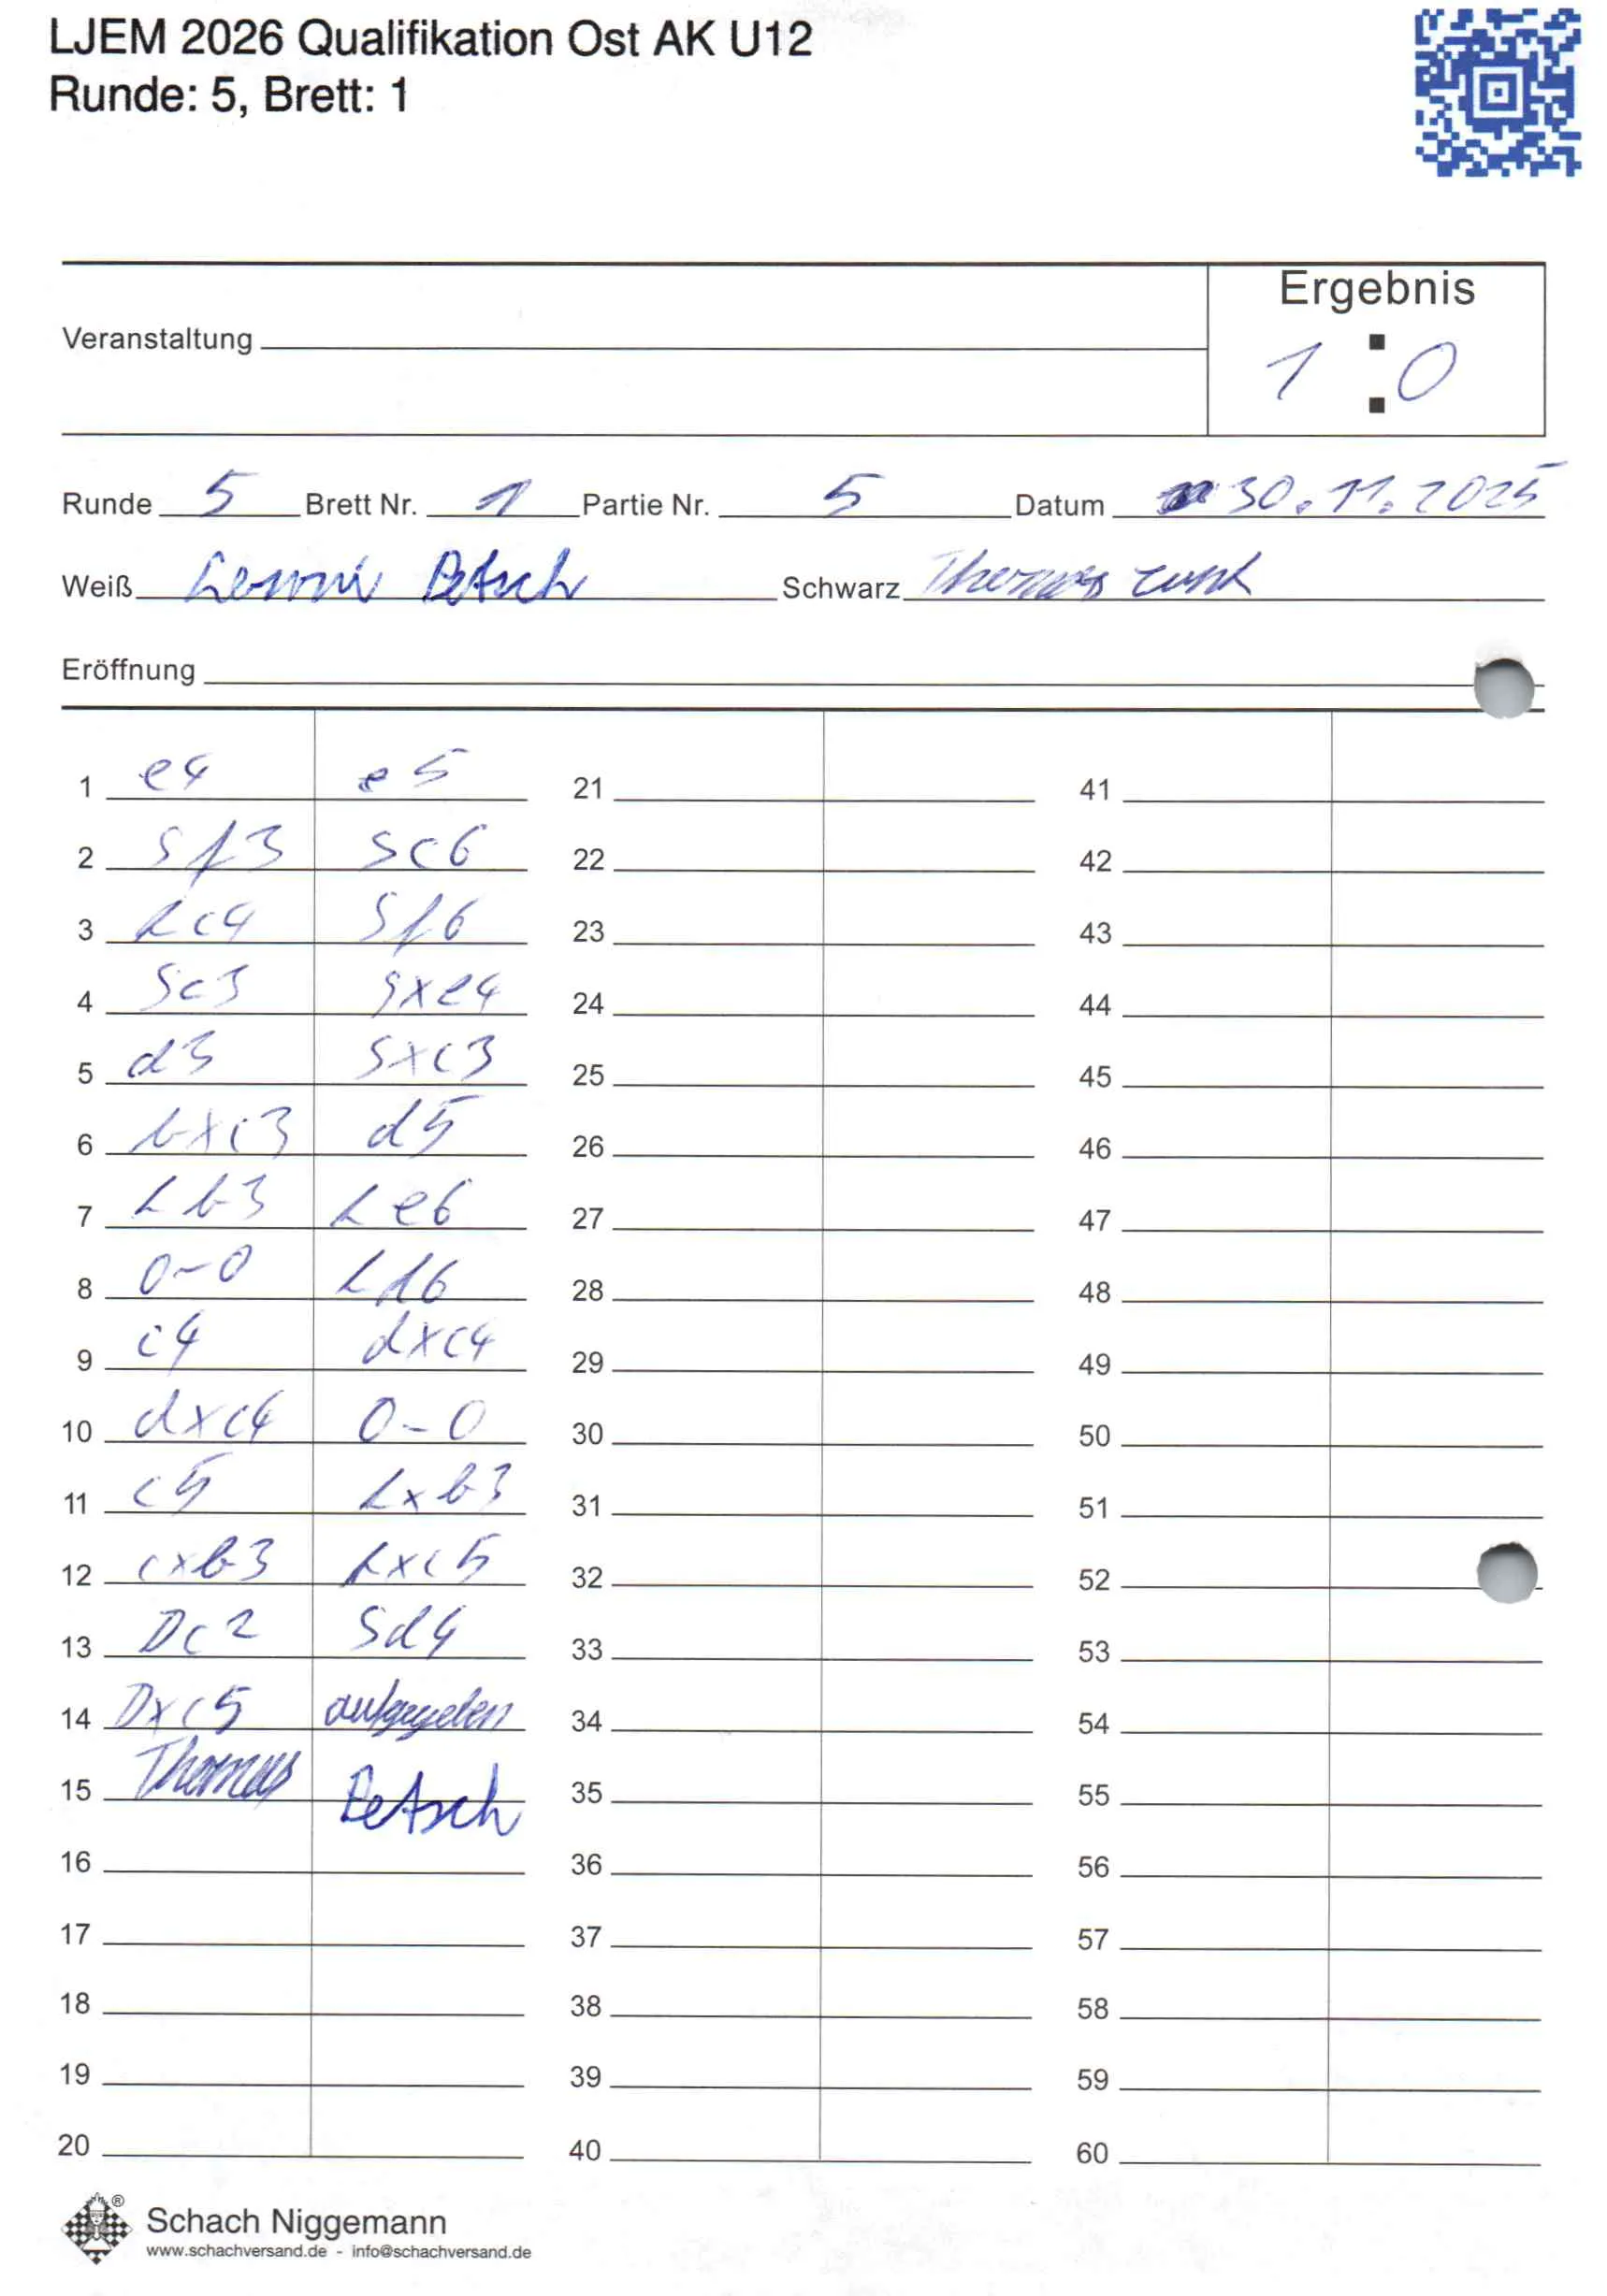 LJEM 2026 Qualifikation Ost AK U12
Runde: 5, Brett: 1
Ergebnis
1 : 0
Veranstaltung
Runde 5 Brett Nr. 1 Partie Nr. 5 Datum 30.11.2025
Weiß Lenni Betsch Schwarz Thomas
Eröffnung
1 e4 e5 21 41
2 Sf3 Sc6 22 42
3 Lc4 Sf6 23 43
4 Sc3 Sxe4 24 44
5 d3 Sxc3 25 45
6 bxc3 d5 26 46
7 Lb3 Le6 27 47
8 0-0 Ld6 28 48
9 c4 dxc4 29 49
10 dxc4 0-0 30 50
11 c5 Lxb3 31 51
12 cxb3 Lxc5 32 52
13 Dc2 Sd4 33 53
14 Dxc5 aufgegeben 34 54
15 Thomas Betsch 35 55
16 36 56
17 37 57
18 38 58
19 39 59
20 40 60
® Schach Niggemann
www.schachversand.de - info@schachversand.de